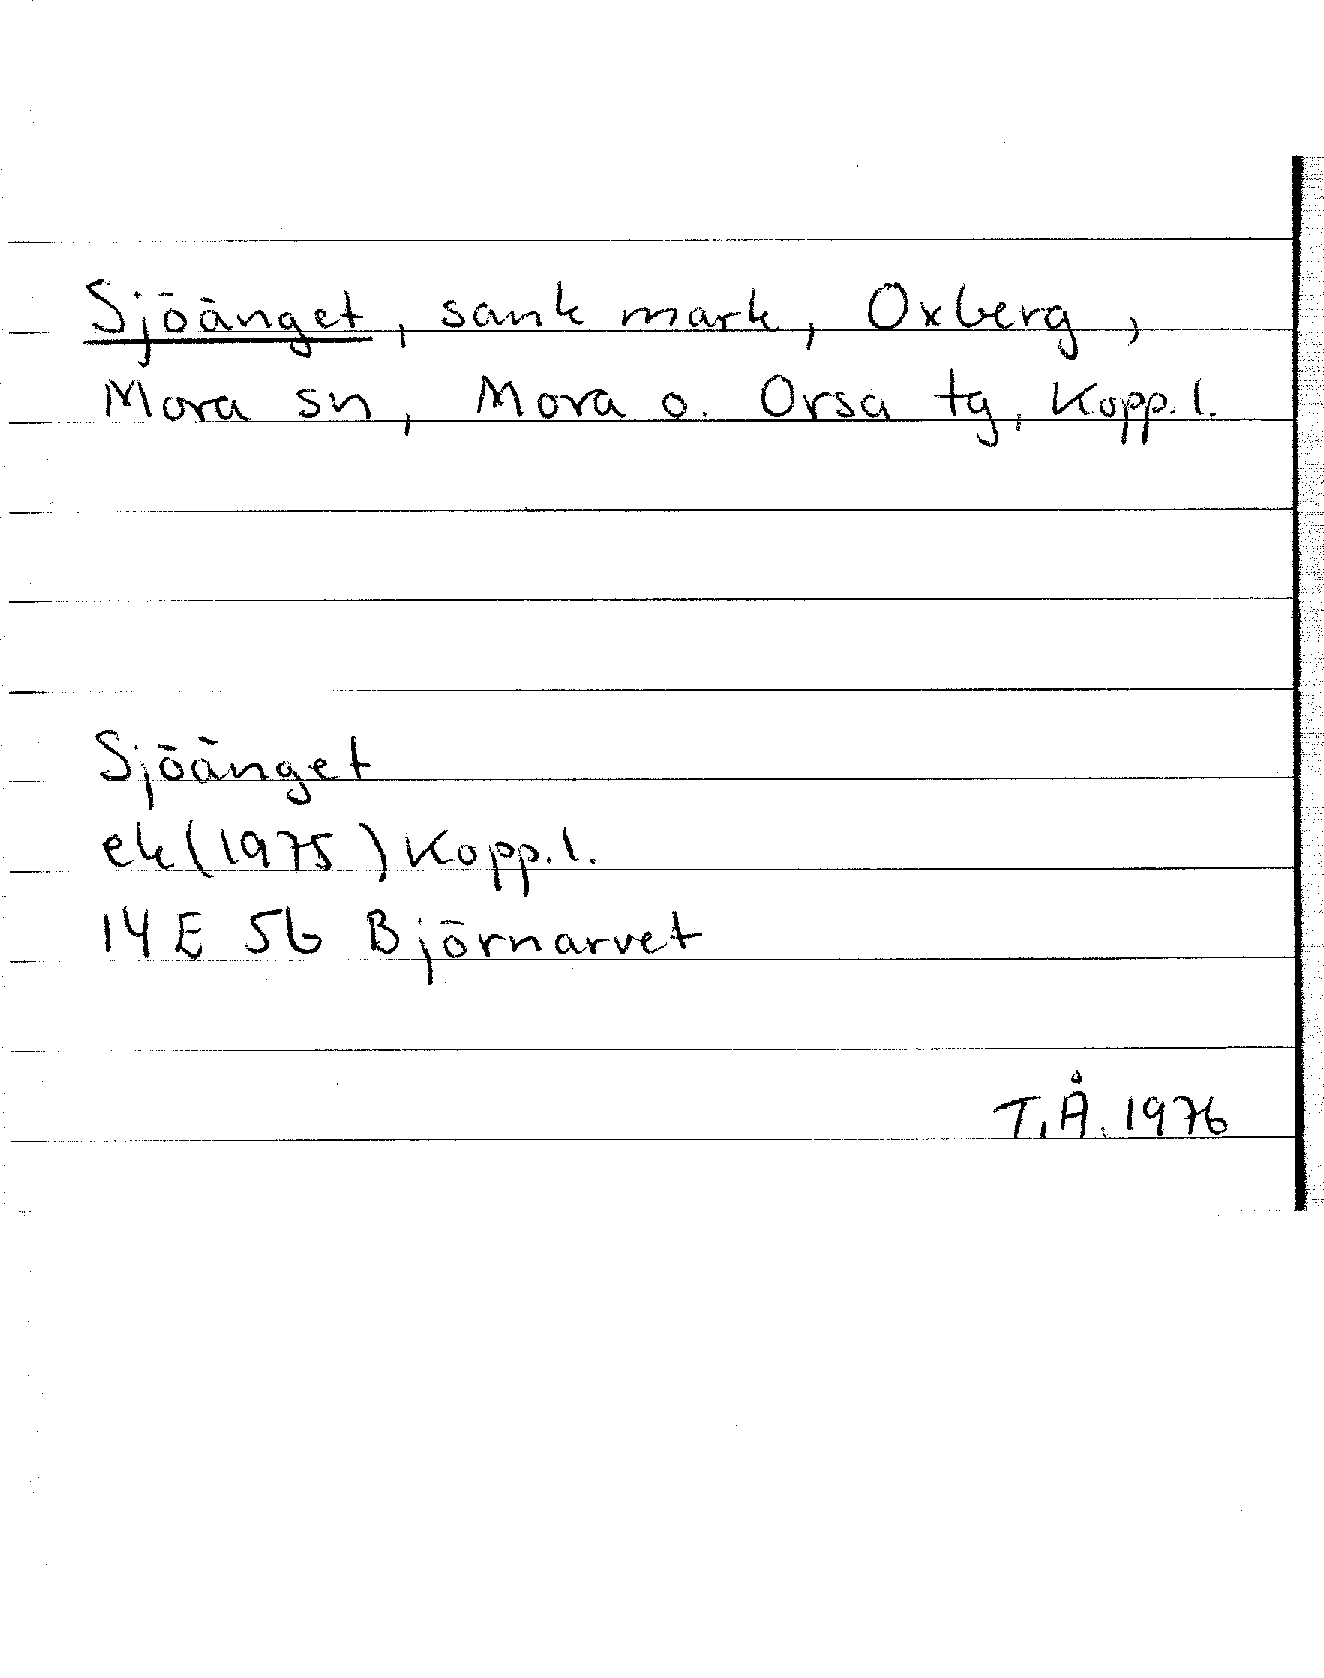 Sjöänget, sank mark, Oxberg,
Mora sn, Mora o. Orsa tg, Kopp.l.
Sjöänget
ek (1975) Kopp.l.
14 E 5b Björnarvet
T.Å. 1976